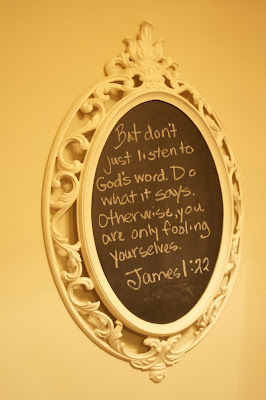 But don't
just listen to
God's word. Do
what it says.
Otherwise, you
are only fooling
yourselves.
James 1:22